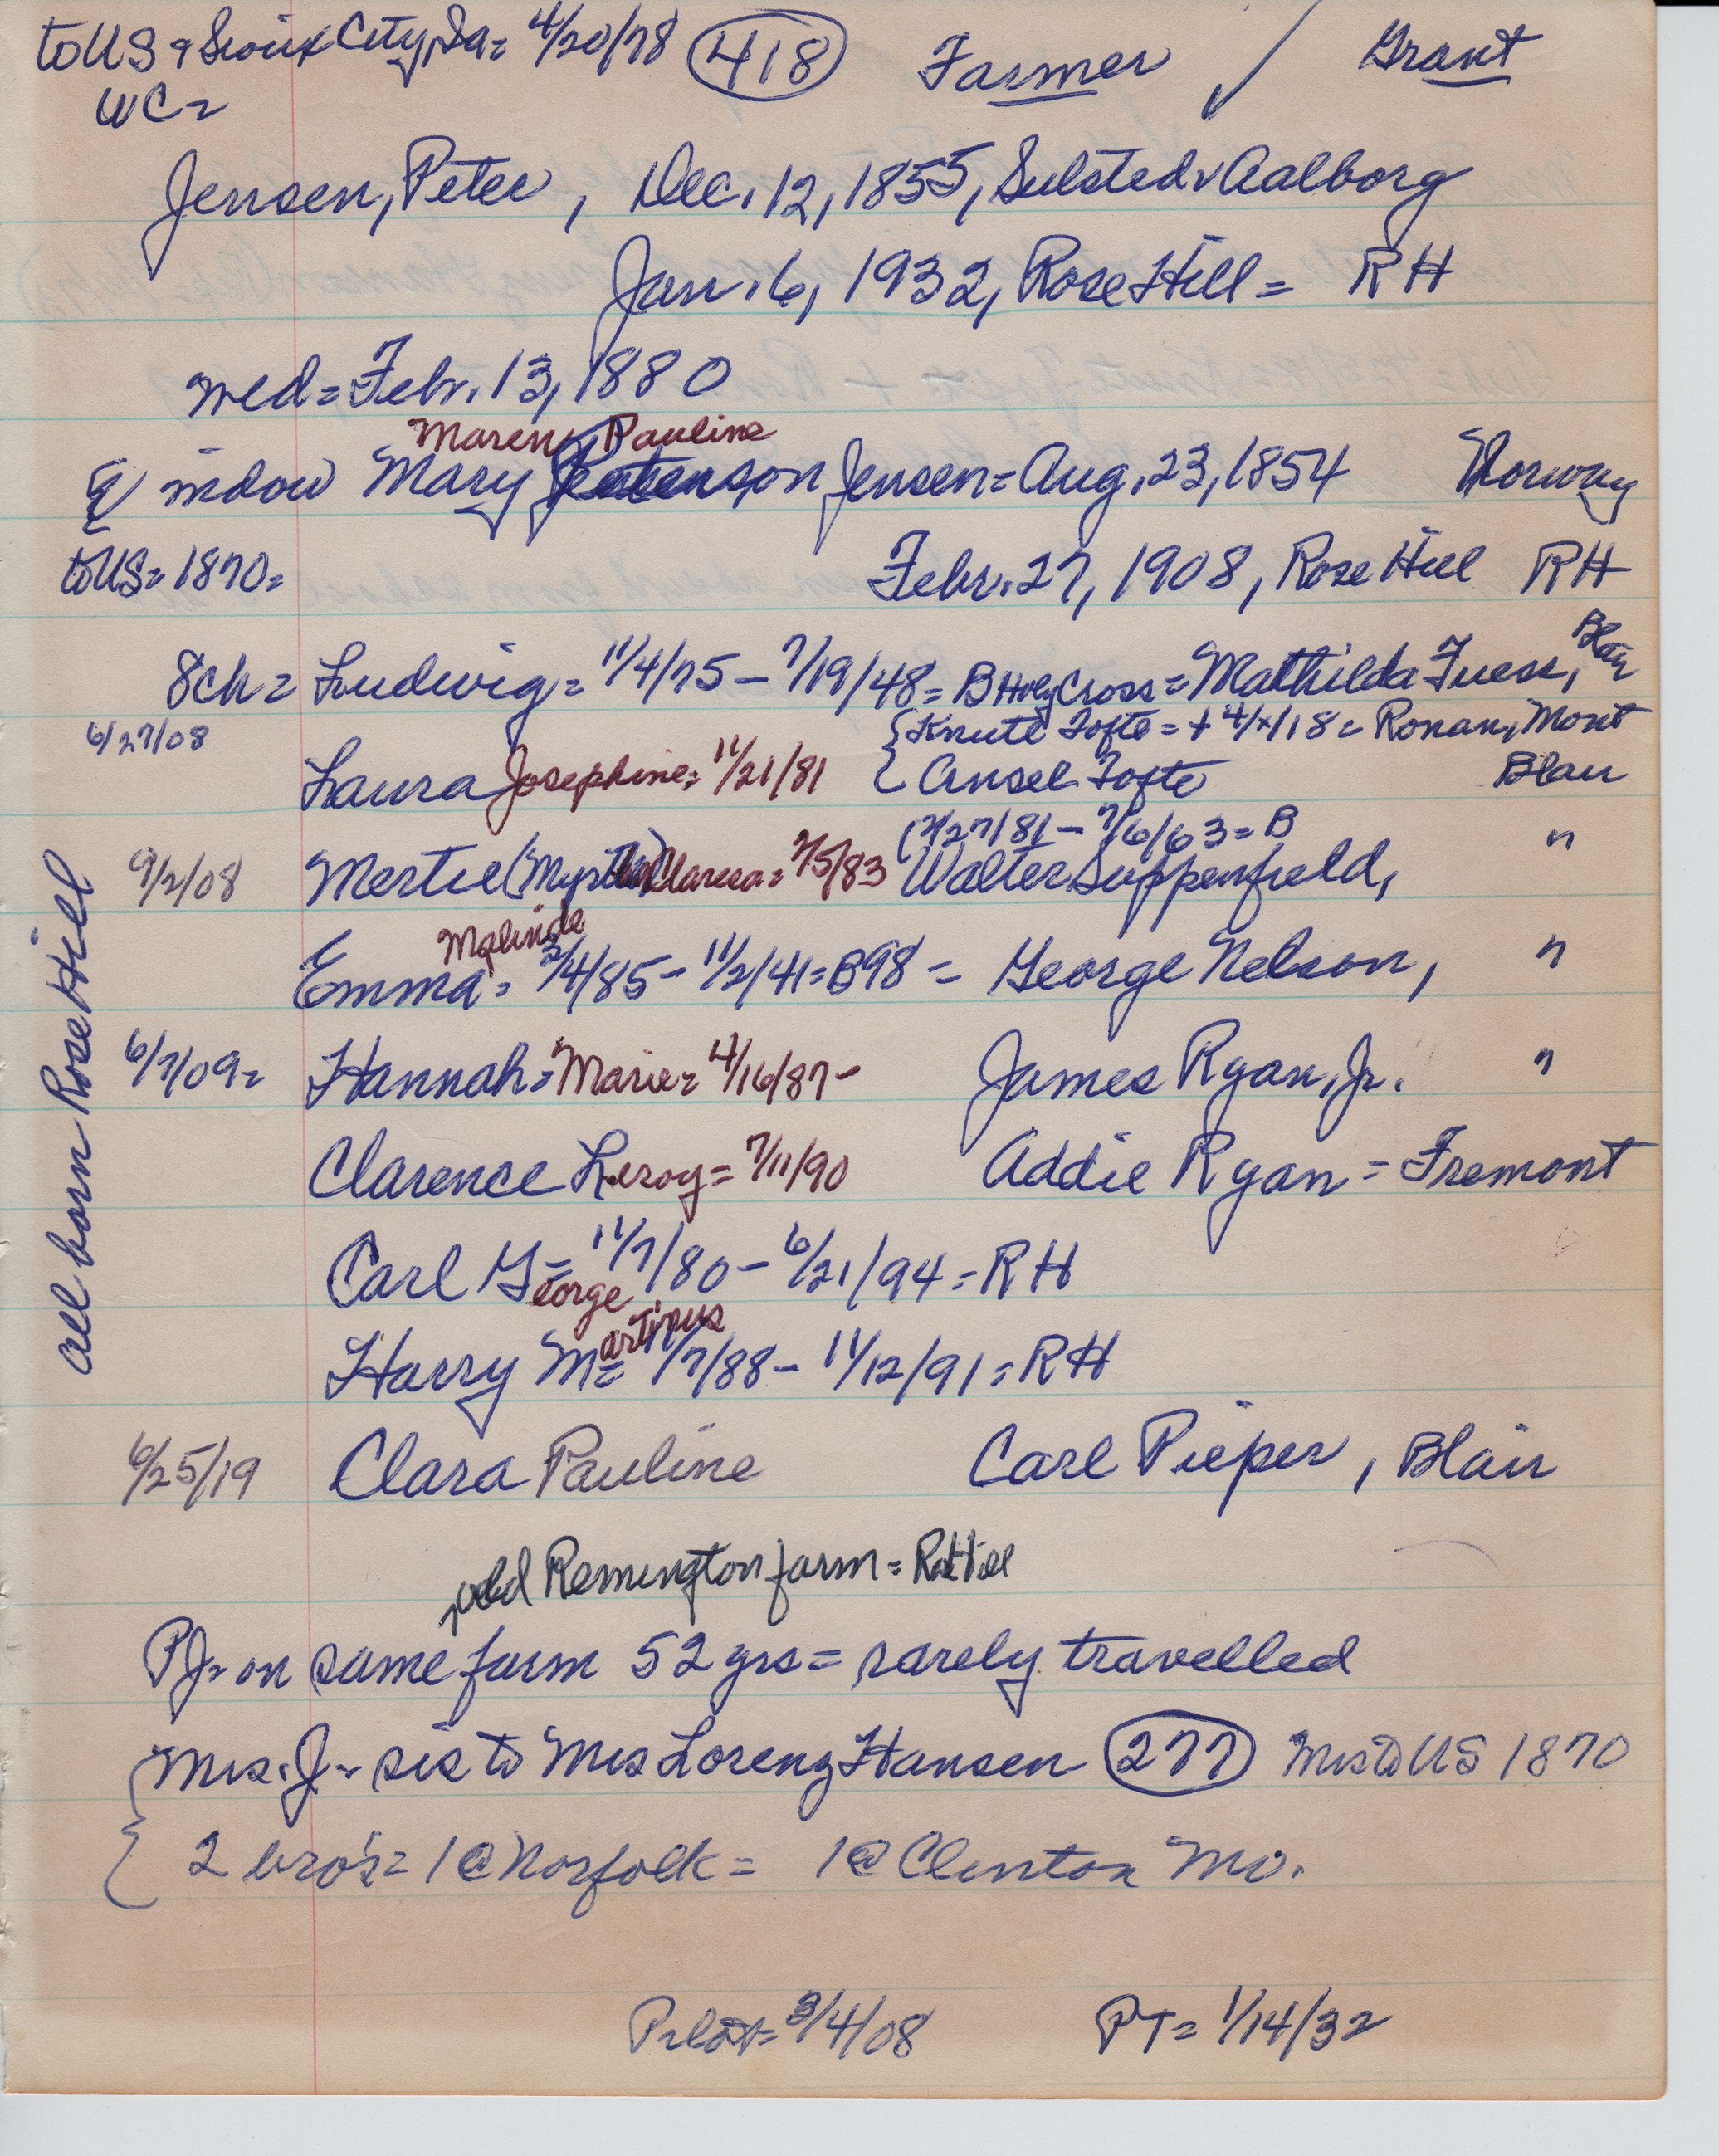 to US & Sioux City, Ia = 4/20/78 (418) Farmer / Grant
WC =
Jensen, Peter, Dec. 12, 1855, Sulsted v Aalborg
Jan. 6, 1932, Rose Hill = RH
wed = Febr. 13, 1880
Maren Pauline
widow Mary Jensen = Aug. 23, 1854 Norway
to US = 1870 =
Febr. 27, 1908, Rose Hill RH
8 ch = Ludwig = 11/4/75 - 7/19/48 = B Holy Cross = Mathilda Fuess, Blair
6/27/08 { Knute Tofte = + 4/x/18 = Ronan, Mont
Laura Josephine = 11/21/81 { Ansel Tofte Blair
(7/27/81 - 7/6/63 = B
9/2/08 Mertie (Myrtle) Claressa = 7/5/83 Walter Suppenfield, "
Malinda
Emma = 3/4/85 - 11/2/41 = B98 = George Nelson, "
6/7/09 = Hannah = Marie = 4/16/87 - James Ryan, Jr. "
Clarence Leroy = 7/11/90 Addie Ryan = Fremont
Carl George = 11/7/80 - 6/21/94 = RH
Harry Martinus = 11/7/88 - 11/12/91 = RH
6/25/19 Clara Pauline Carl Pieper, Blair
all born Rose Hill
old Remington farm =
PJ = on same farm 52 yrs = rarely travelled
{ Mrs. J - sis to Mrs Lorenz Hansen (277) Mrs to US 1870
{ 2 bro's = 1 @ Norfolk = 1 @ Clinton Mo.
Pilot = 3/4/08 PT = 1/14/32